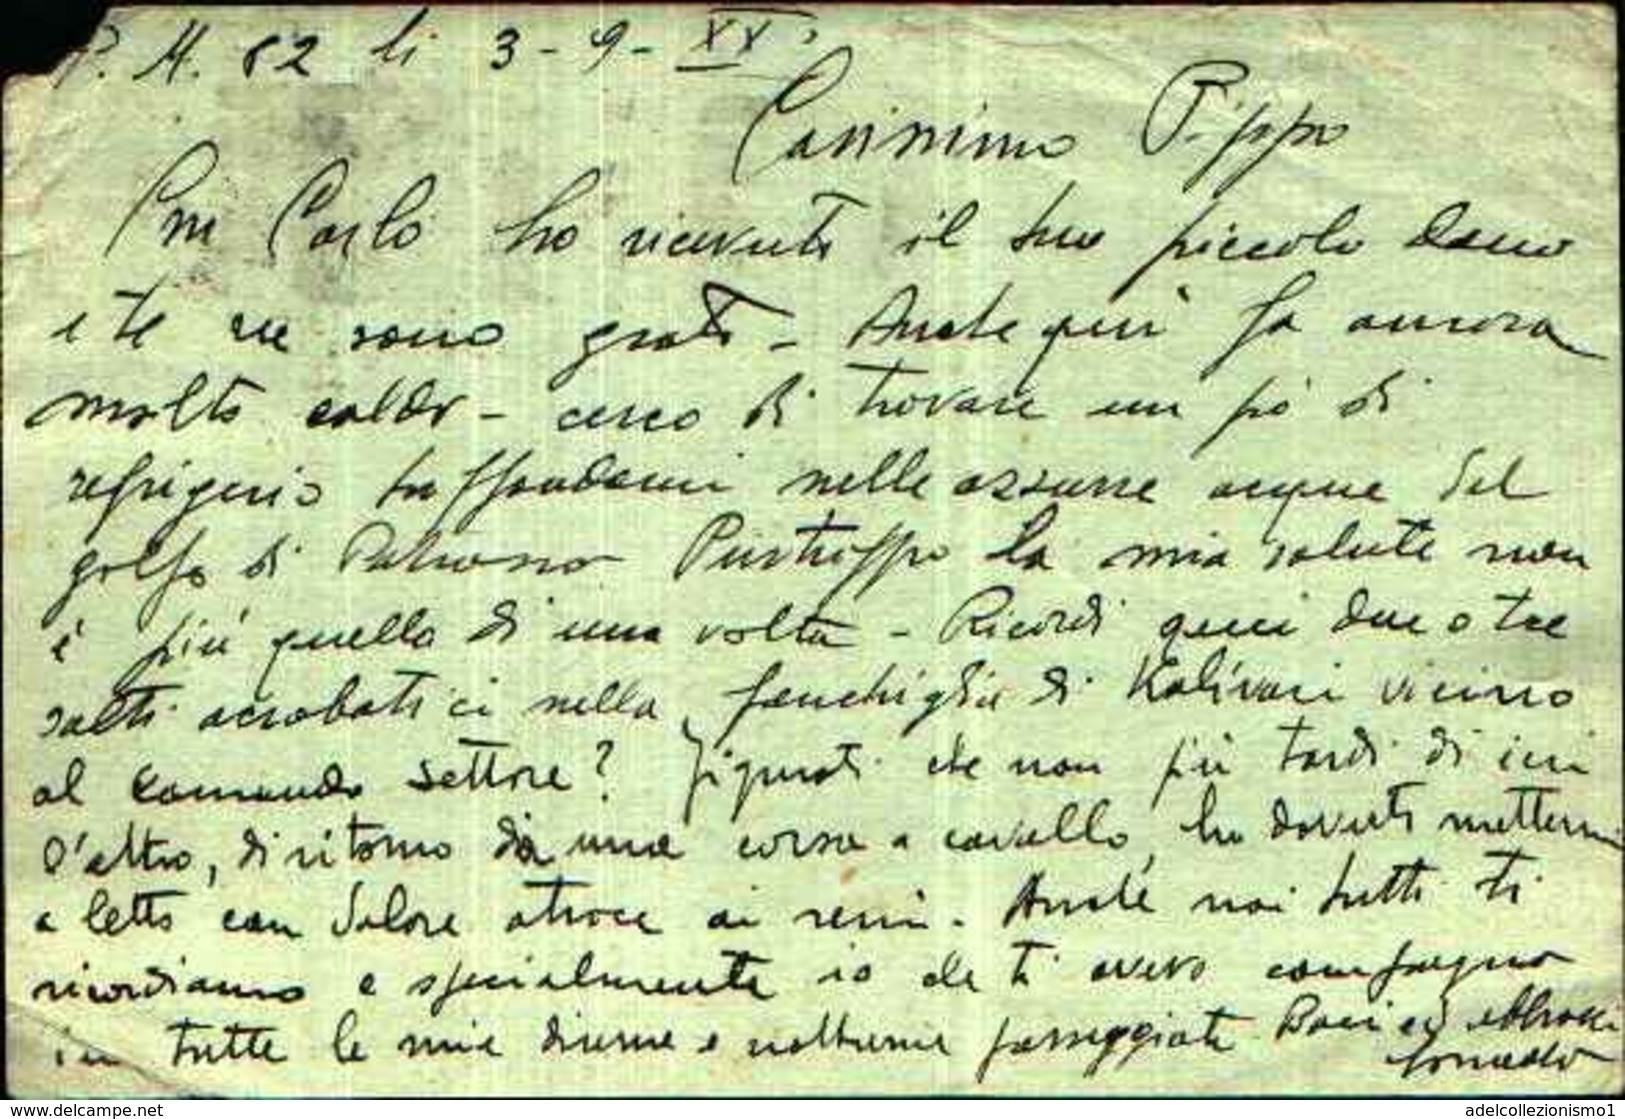 P. M. 82 li 3-9-XX°
Carissimo Pippo
Cui Carlo ho ricevuto il tuo piccolo dono
e te ne sono grato - Anche qui fa ancora
molto caldo - cerco di trovare un pò di
refrigerio tuffandomi nelle azzurre acque del
golfo di Patrasso Purtroppo la mia salute non
è più quella di una volta - Ricordi quei due o tre
salti acrobatici nella fanchiglia di Kalivari vicino
al comando settore? Figurati che non più tardi di ieri
l'altro, di ritorno da una corsa a cavallo, ho dovuto mettermi
a letto con dolore atroce ai reni. Anche noi tutti ti
ricordiamo e specialmente io che ti avevo compagno
in tutte le mie diurne e notturne passeggiate Baci ed abbracci
adelcollezionismo1